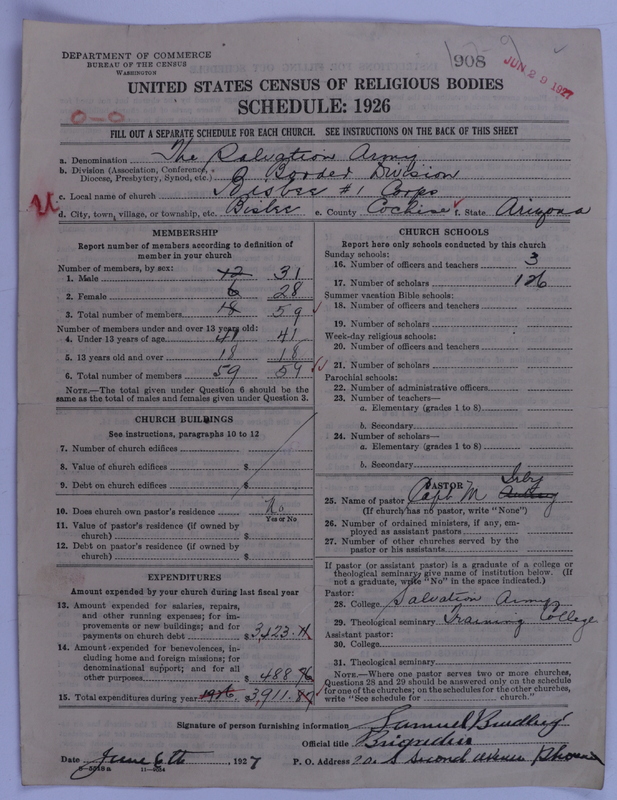 DEPARTMENT OF COMMERCE
BUREAU OF THE CENSUS
WASHINGTON
908
JUN 29 1927
UNITED STATES CENSUS OF RELIGIOUS BODIES
SCHEDULE: 1926
0-0
FILL OUT A SEPARATE SCHEDULE FOR EACH CHURCH. SEE INSTRUCTIONS ON THE BACK OF THIS SHEET
a. Denomination The Salvation Army
b. Division (Association, Conference, Diocese, Presbytery, Synod, etc.) Border Division
c. Local name of church Bisbee #1 Corps
d. City, town, village, or township, etc. Bisbee e. County Cochise f. State Arizona
MEMBERSHIP
Report number of members according to definition of
member in your church
Number of members, by sex:
1. Male 12 31
2. Female 6 28
3. Total number of members 18 59
Number of members under and over 13 years old:
4. Under 13 years of age 41 41
5. 13 years old and over 18 18
6. Total number of members 59 59
NOTE.—The total given under Question 6 should be the
same as the total of males and females given under Question 3.
CHURCH BUILDINGS
See instructions, paragraphs 10 to 12
7. Number of church edifices
8. Value of church edifices $
9. Debt on church edifices $
10. Does church own pastor's residence No
Yes or No
11. Value of pastor's residence (if owned by
church) $
12. Debt on pastor's residence (if owned by
church) $
EXPENDITURES
Amount expended by your church during last fiscal year
13. Amount expended for salaries, repairs,
and other running expenses; for im-
provements or new buildings; and for
payments on church debt $3,423.11
14. Amount expended for benevolences, in-
cluding home and foreign missions; for
denominational support; and for all
other purposes $488.76
15. Total expenditures during year 1926 $3,911.87
CHURCH SCHOOLS
Report here only schools conducted by this church
Sunday schools:
16. Number of officers and teachers 3
17. Number of scholars 126
Summer vacation Bible schools:
18. Number of officers and teachers
19. Number of scholars
Week-day religious schools:
20. Number of officers and teachers
21. Number of scholars
Parochial schools:
22. Number of administrative officers
23. Number of teachers—
a. Elementary (grades 1 to 8)
b. Secondary
24. Number of scholars—
a. Elementary (grades 1 to 8)
b. Secondary
PASTOR
25. Name of pastor Capt. M Irby
(If church has no pastor, write "None")
26. Number of ordained ministers, if any, em-
ployed as assistant pastors
27. Number of other churches served by the
pastor or his assistants
If pastor (or assistant pastor) is a graduate of a college or
theological seminary, give name of institution below. (If
not a graduate, write "No" in the space indicated.)
Pastor:
28. College Salvation Army
29. Theological seminary Training College
Assistant pastor:
30. College
31. Theological seminary
NOTE.—Where one pastor serves two or more churches,
Questions 28 and 29 should be answered only on the schedule
for one of the churches; on the schedules for the other churches,
write "See schedule for church."
Signature of person furnishing information Samuel Bradley
Official title Brigadier
Date June 6th, 1927 P. O. Address S Second Avenue Phoenix